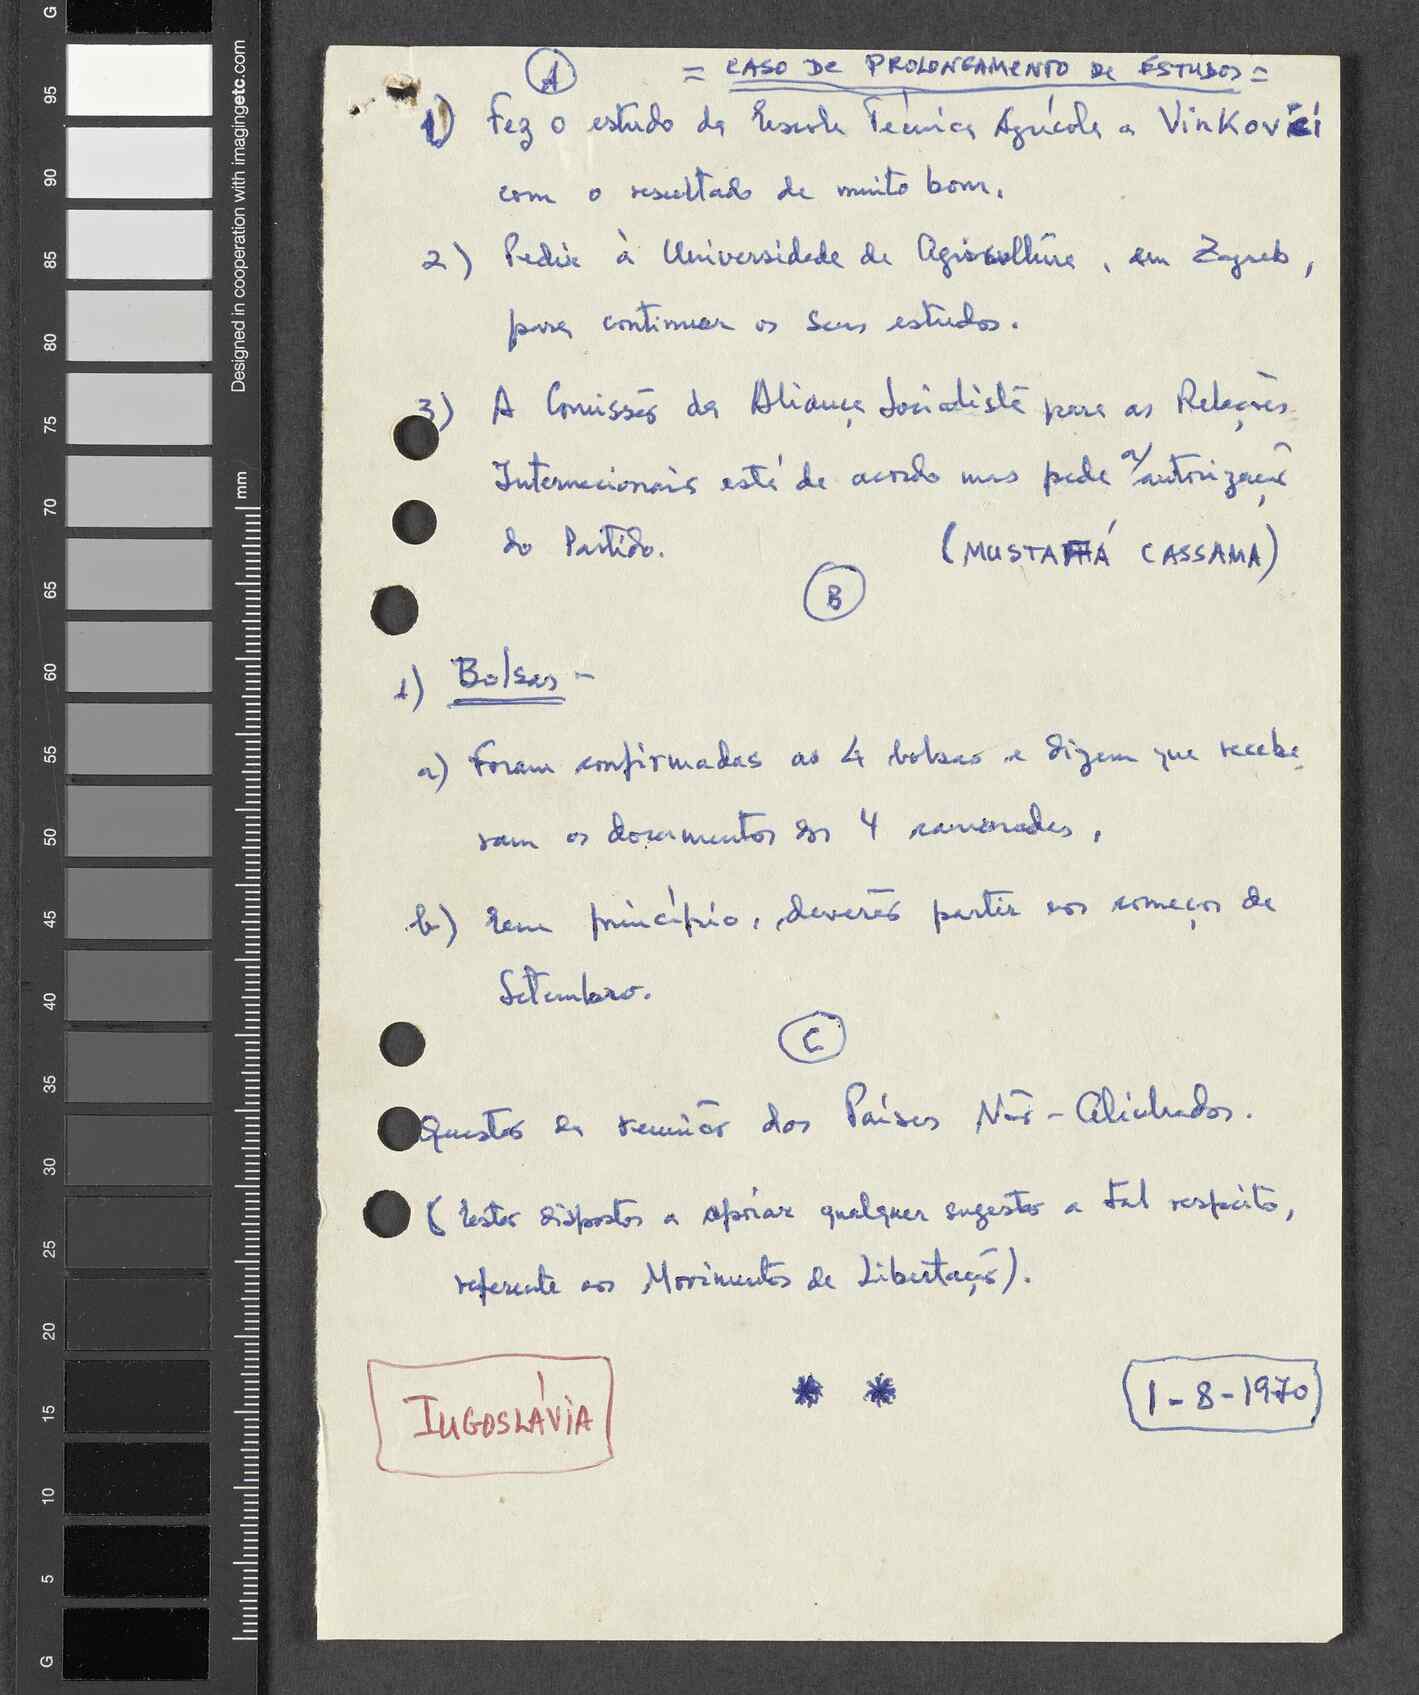 A = CASO DE PROLONGAMENTO DE ESTUDOS =
1) Fez o estudo da Escola Técnica Agrícola a Vinkovici
com o resultado de muito bom.
2) Pedir à Universidade de Agricultura, em Zagreb,
para continuar os seus estudos.
3) A Comissão da Aliança Socialista para as Relações
Internacionais está de acordo mas pede a autorização
do Partido. (MUSTAFÁ CASSAMA)
B
1) Bolsas -
a) Foram confirmadas as 4 bolsas e dizem que recebe
ram os documentos dos 4 camaradas.
b) Em princípio, deverão partir nos começos de
Setembro.
C
Questão da reunião dos Países Não-Alinhados.
(Estão dispostos a apoiar qualquer sugestão a tal respeito,
referente aos Movimentos de Libertação).
IUGOSLÁVIA
* *
1-8-1970
Designed in cooperation with imagingetc.com
mm
G
95
90
85
80
75
70
65
60
55
50
45
40
35
30
25
20
15
10
5
G